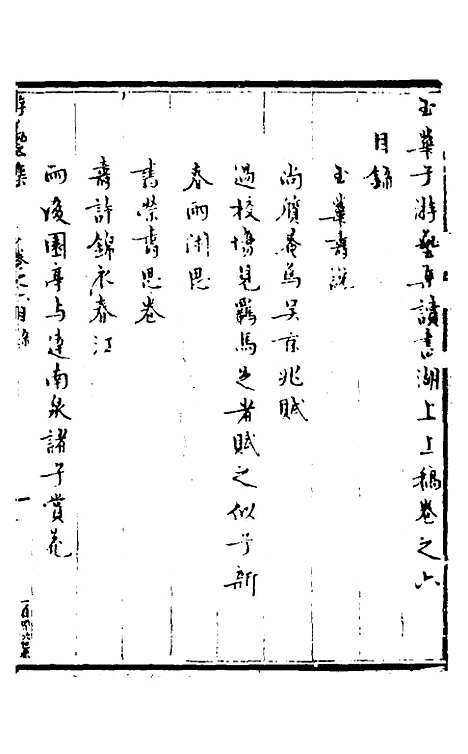 玉華子游藝集讀書湖上上稿卷之六
目錄
玉華壽說
尚質菴爲吳京兆賦
過校場見羈馬足者賦之似于新
春雨閑思
書榮壽恩卷
壽許錦衣春江
雨後園亭与達南泉諸子賞花
游藝集 卷之六目錄 一